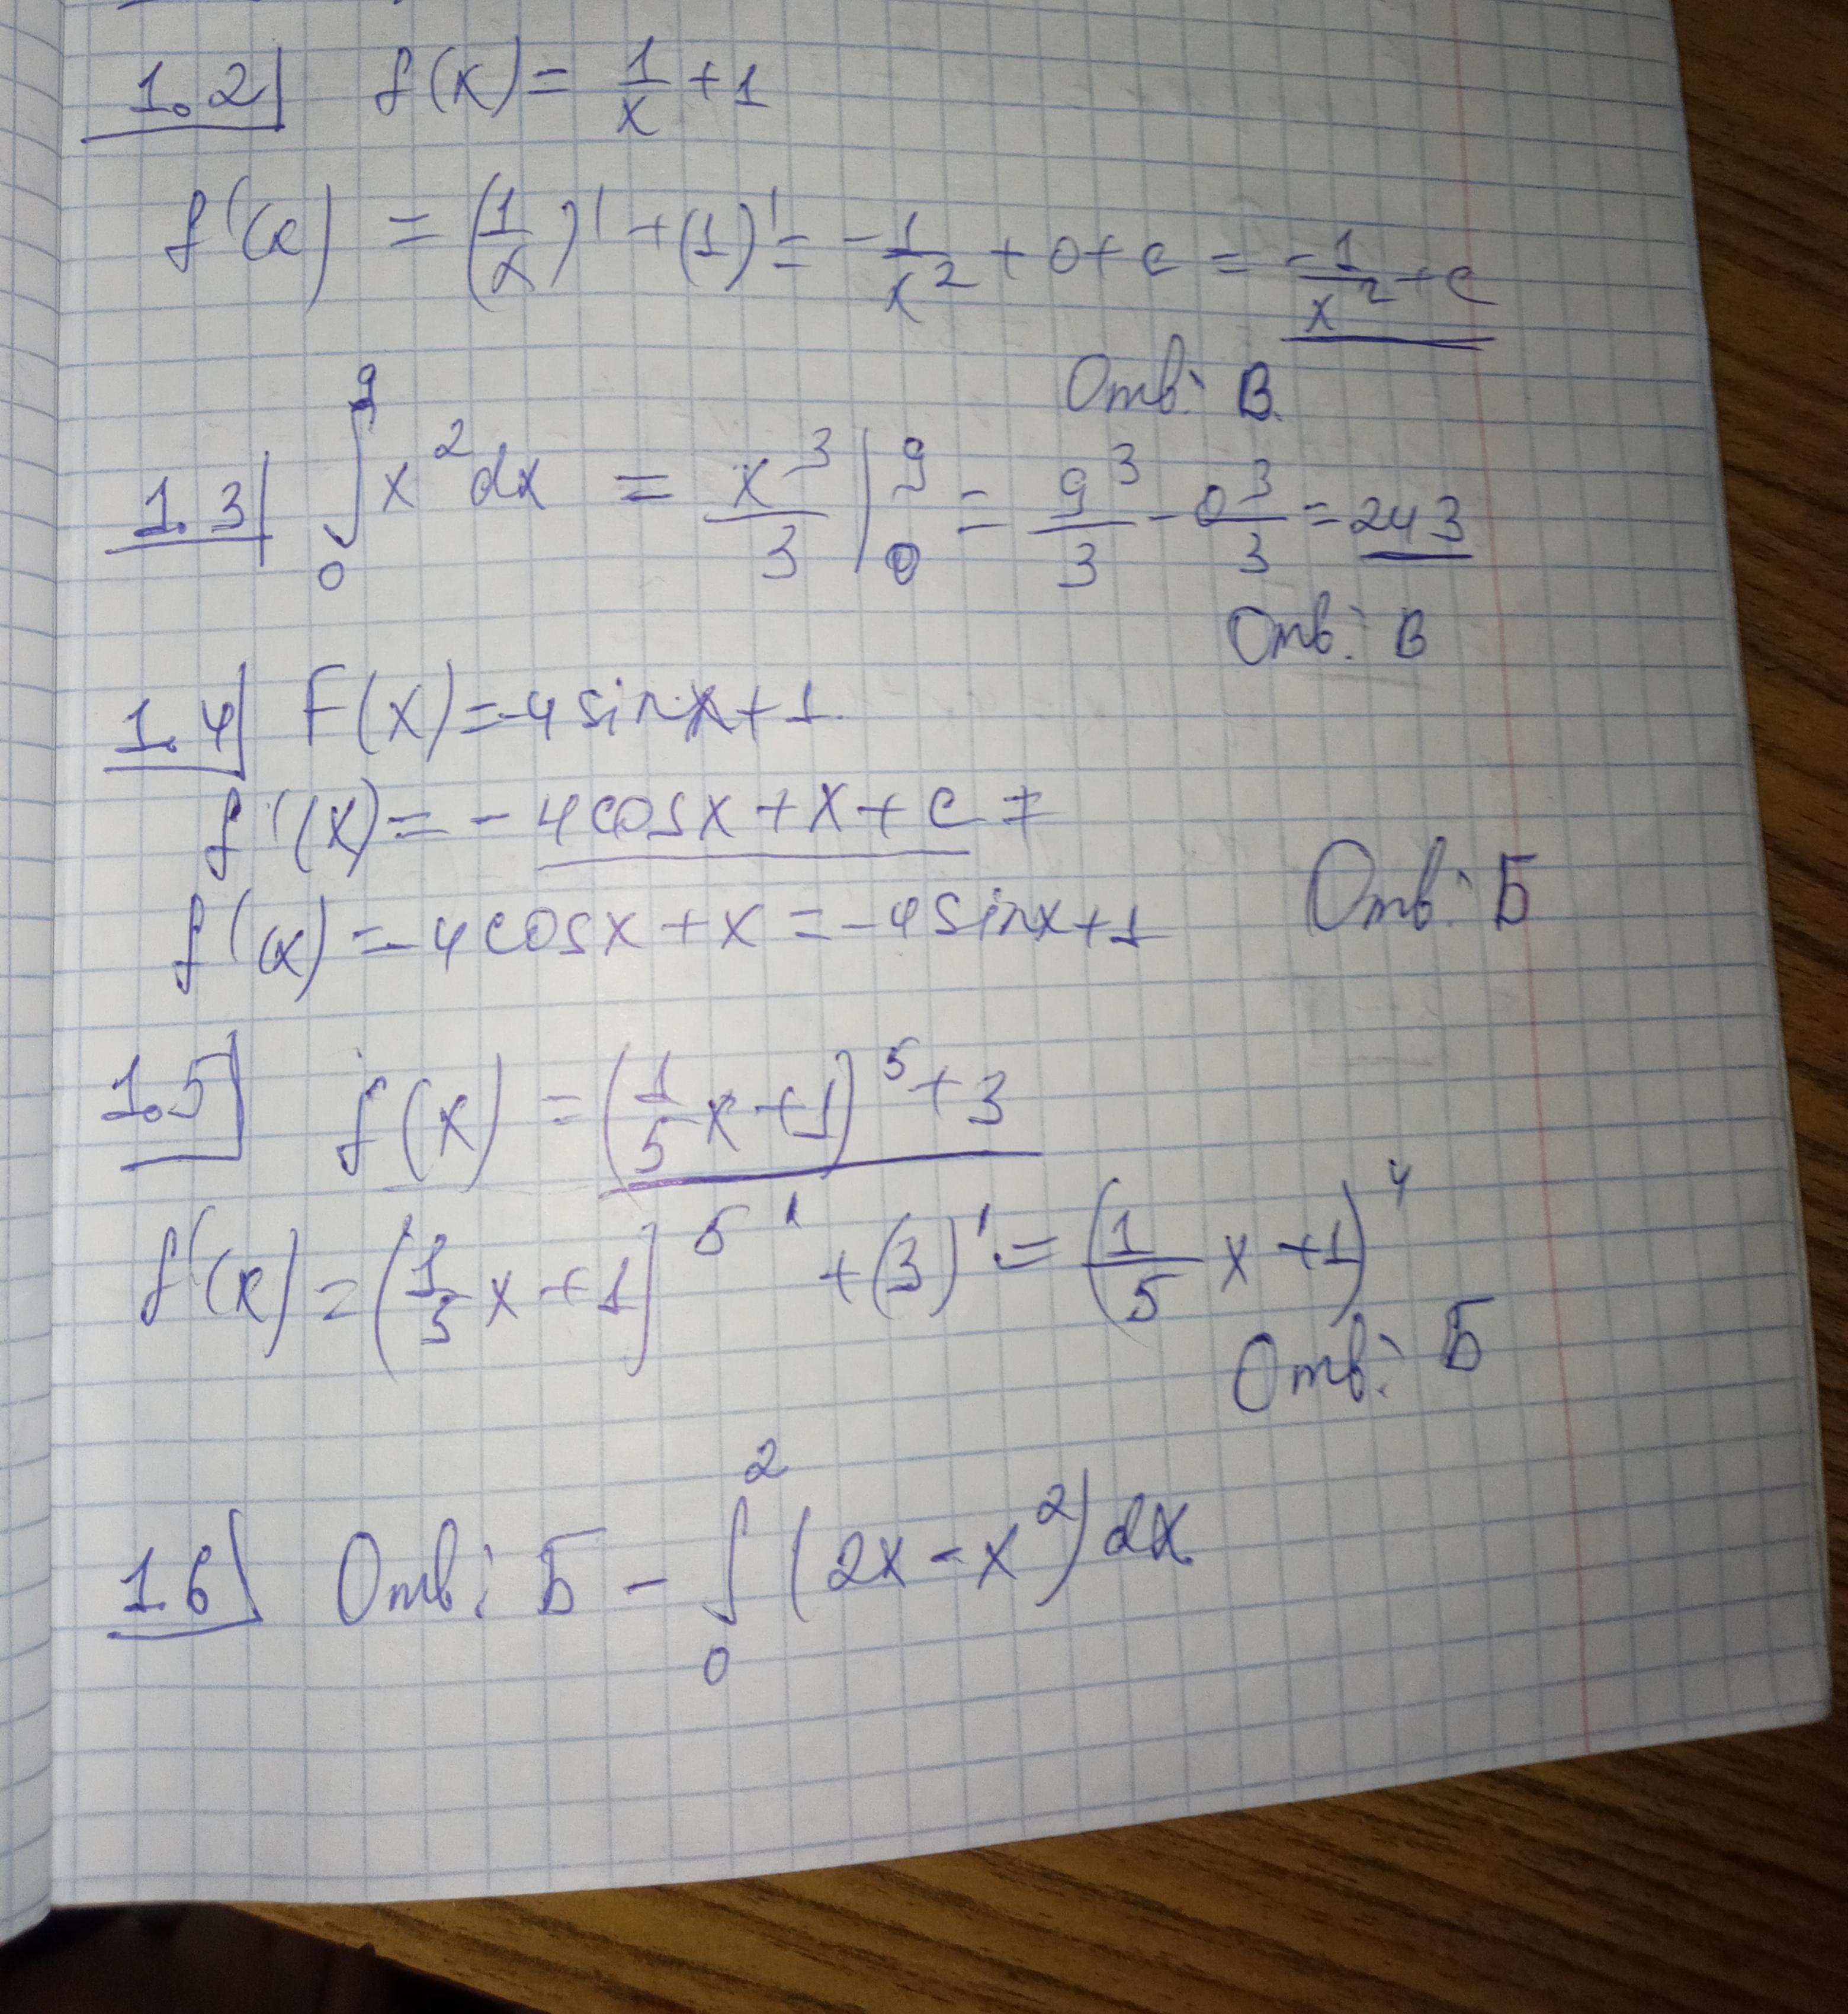 1.2 f(x) = 1/x + 1
f'(x) = (1/x)' + (1)' = -1/x² + 0 + c = -1/x² + c
Отв: В.
1.3 ∫₀⁹ x² dx = x³/3 |₀⁹ = 9³/3 - 0³/3 = 243
Отв: В
1.4 F(x) = -4 sin x + 1.
f'(x) = -4 cos x + x + c =
f'(x) = -4 cos x + x = -4 sin x + 1 Отв: Б
1.5 f(x) = (1/5 x + 1)⁵ + 3
f'(x) = (1/5 x + 1)⁵' + (3)' = (1/5 x + 1)⁴
Отв: Б
1.6 Отв: Б - ∫₀² (2x - x²) dx